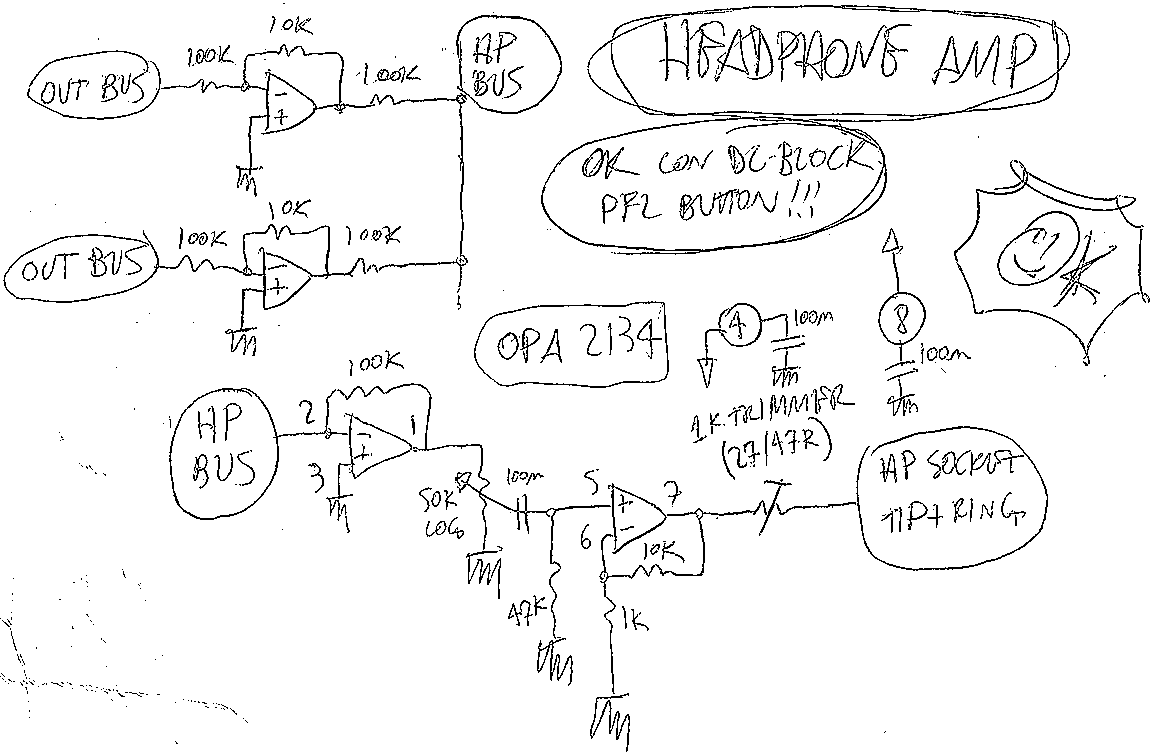 HEADPHONE AMP
OK CON DC-BLOCK
PFL BUTTON!!!
OK
OUT BUS
100K
10K
100K
HP
BUS
OUT BUS
100K
10K
100K
OPA 2134
4
100m
8
100m
HP
BUS
2
3
100K
1
50K
LOG
100m
47K
5
6
7
10K
1K
1K TRIMMER
(27/47R)
HP SOCKET
TIP+RING